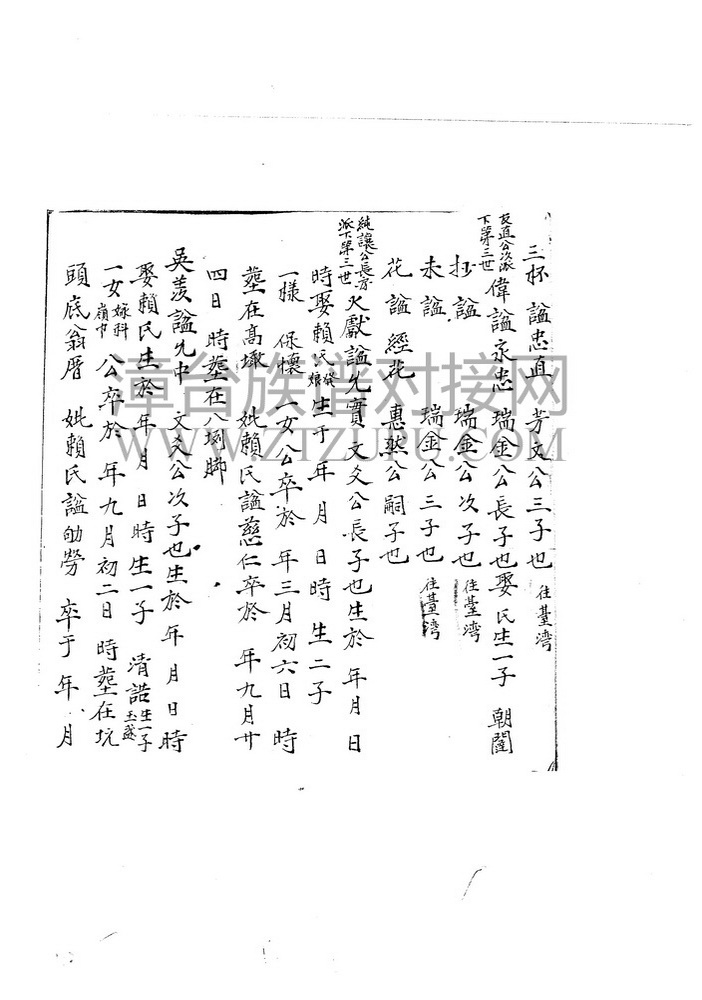 三杯 謚忠直 芳文公三子也 往臺湾
友直公次派下第三世 偉謚永忠 瑞金公長子也娶 氏生一子 朝
謚 瑞金公次子也 往臺湾
未謚 瑞金公三子也 往臺湾
花謚 經花 惠然公嗣子也
純讓公長房派下第三世 火獻謚允實 文爻公長子也生於 年月日
時娶賴氏 娘 生于 年 月 日時 生二子
一樣 保懷 一女公卒於 年三月初六日 時
塟在高墩 妣賴氏謚慈仁卒於 年九月廿
四日 時塟在八 脚
吳羡謚允中 文爻公次子也生於 年 月 日 時
娶賴氏生於 年 月 日 時生一子 清誥 生一子玉盛
一女 嫁科嶺中 公卒於 年九月初二日 時塟在坑
頭底翁厝 妣賴氏謚劬勞 卒于 年 月
漳台族谱对接网
WWW.ZTZUPU.COM